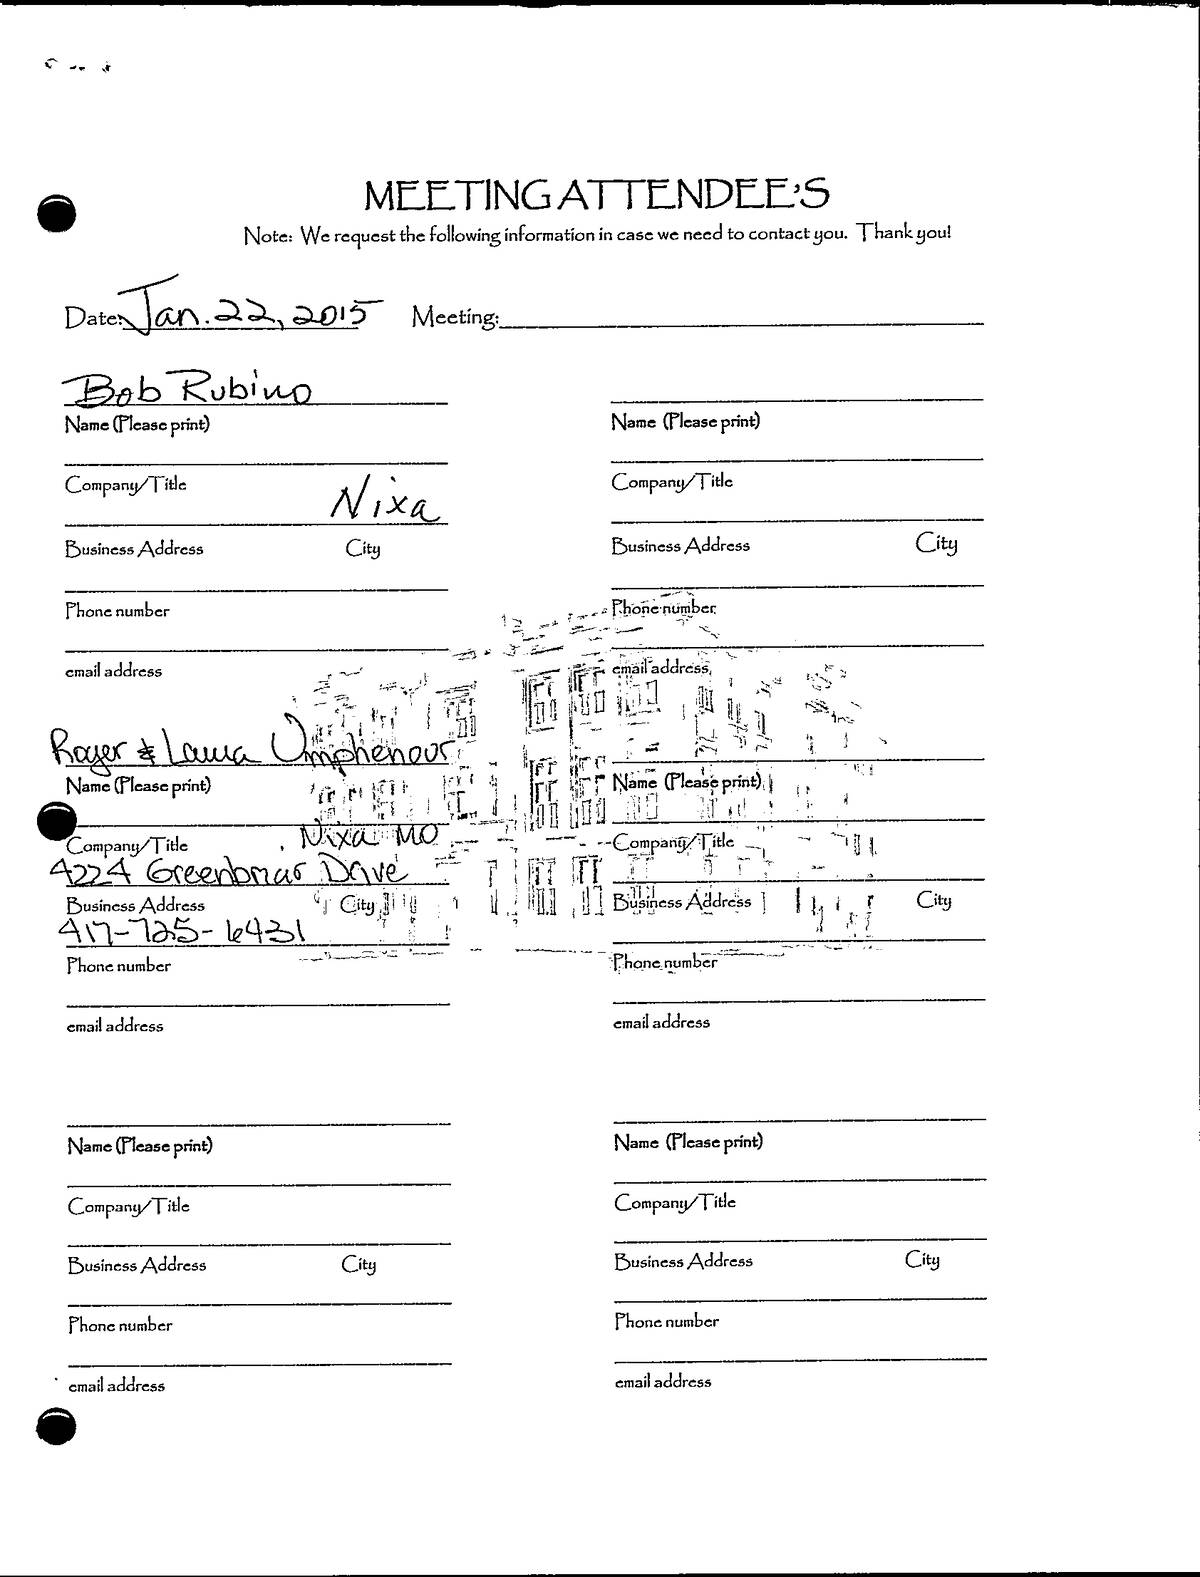 MEETING ATTENDEE'S
Note: We request the following information in case we need to contact you. Thank you!
Date: Jan. 22, 2015 Meeting:
Bob Rubino
Name (Please print)
Company/Title
Nixa
Business Address City
Phone number
email address
Roger & Laura Umphenour
Name (Please print)
Company/Title Nixa MO
4224 Greenbriar Drive
Business Address City
417-725-6431
Phone number
email address
Name (Please print)
Company/Title
Business Address City
Phone number
email address
Name (Please print)
Company/Title
Business Address City
Phone number
email address
Name (Please print)
Company/Title
Business Address City
Phone number
email address
Name (Please print)
Company/Title
Business Address City
Phone number
email address